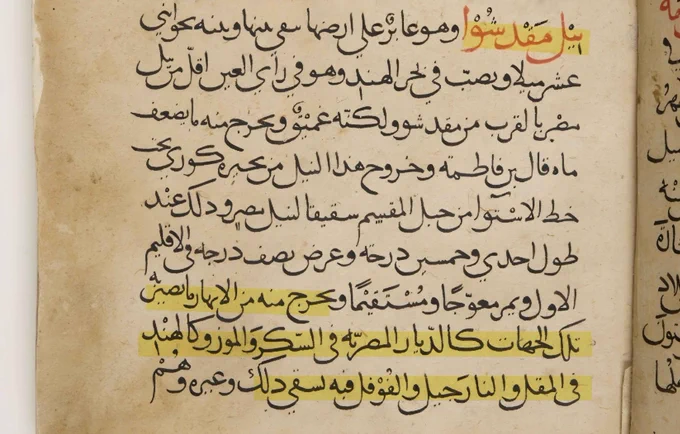 نيل مقدشوا وهو عابر على ارضها سقى بينها وبينه نحو اثنى
عشر ميلا ويصب في بحر الهند وهو في رأى العين اقل من نيل
مصر بالقرب من مقدشو ولكنه عميق ويخرج منه ما يضعف
ماه قال بن فاطمة وخروج هذا النيل من بحيرة كورى تحت
خط الاستوا من جبل المقسم شقيقا لنيل مصر وذلك عند
طول احدى وخمسين درجه وعرض نصف درجه فى الاقليم
الاول ويمر معوجا ومستقيما ويخرج منه من الانهار ما يصير
تلك الجهات كالديار المصريه فى السكر والموز وكالهند
فى المقل والنارجيل والفوفل فبه يسقى ذلك وغيره وهم